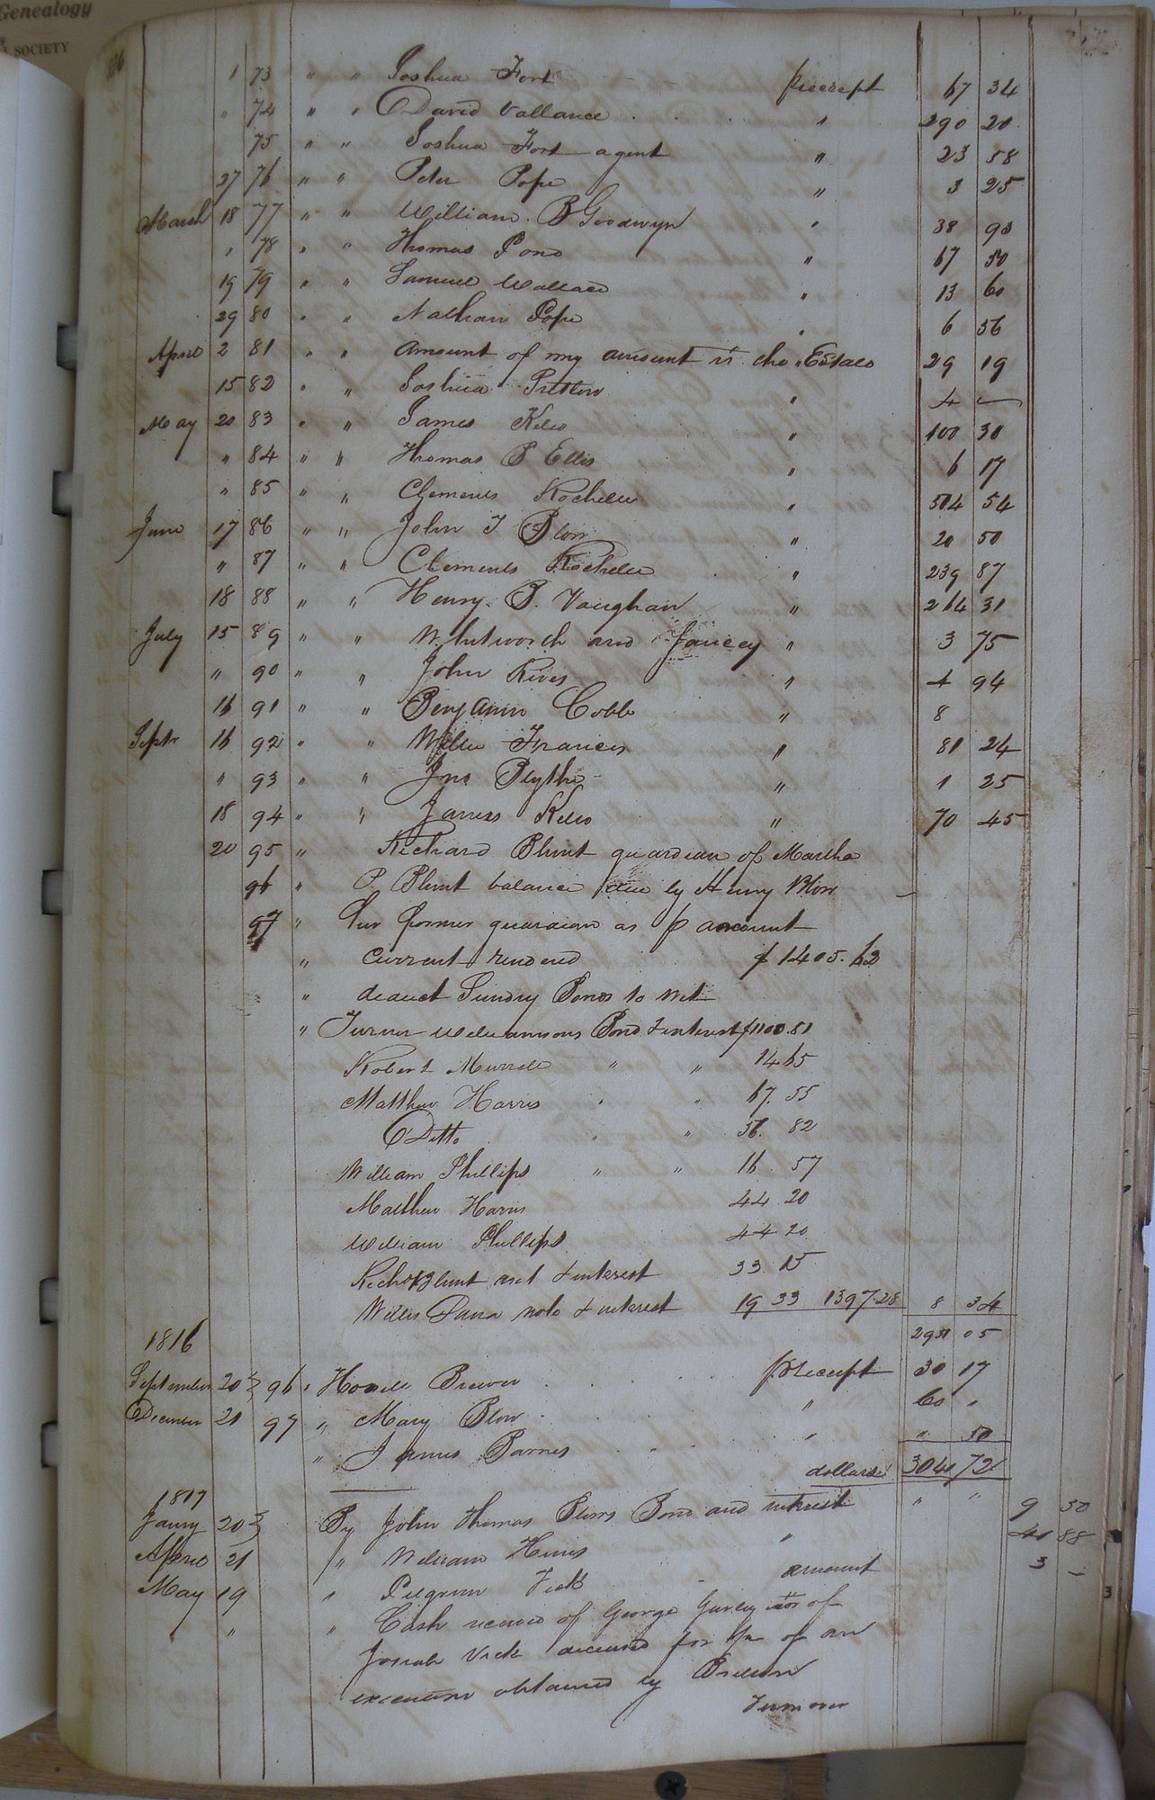 Genealogy
SOCIETY
1 73 " " Joshua Fort p receipt 67 34
" 74 " " David Vallance " 290 20
75 " " Joshua Fort agent " 23 58
27 76 " " Peter Pope " 3 25
March 18 77 " " William B Goodwyn " 38 90
" 78 " " Thomas Pond " 67 50
19 79 " " Samuel Wallace " 13 60
29 80 " " Nathan Pope " 6 56
April 2 81 " " Amount of my amount vs the Estate 29 19
15 82 " " Joshua Pretlow " 4 —
May 20 83 " " James Kelo " 100 30
" 84 " " Thomas P Ellis " 6 17
" 85 " " Clements Rochelle " 504 54
June 17 86 " " John T Blow " 20 50
" 87 " " Clements Rochelle " 239 87
18 88 " " Henry B. Vaughan " 264 31
July 15 89 " " Whitworth and Yancey " 3 75
" 90 " " John Rives " 4 94
16 91 " " Benjamin Cobb " 8
Septr 16 92 " " Willie Francis " 81 24
" 93 " " Jno Blythe " 1 25
18 94 " " James Kelo " 70 45
20 95 " Richard Blunt guardian of Martha
96 " P. Blunt balance due by Henry Blow
97 " her former guardian as p account
" current rendered $ 1405. 62
" deduct Sundry Bonds to wit
" Turner Williamsons Bond & interest $1100.81
Robert Murrell " " 14 65
Matthew Harris " " 67. 55
Ditto " " 56. 82
William Phillips " " 16 57
Matthew Harris 44 20
William Phillips 44 20
Richd Blunt act & interest 33 15
Willis note & interest 19 33 1397.28 8 34
1816 2951 05
September 20 96 " Howell Brewer p receipt 30 17
December 21 97 " Mary Blow " 60 "
" James Barnes " " 50
dollars 3041 72
1817
Jany 20 By John Thomas Blows Bond and interest " " 9 50
April 21 " William Hines " 41 88
May 19 " Pilgrim Vick amount 3 —
" " Cash received of George Gurley of
Josiah Vick deceased for of an
execution obtained by
Turn over